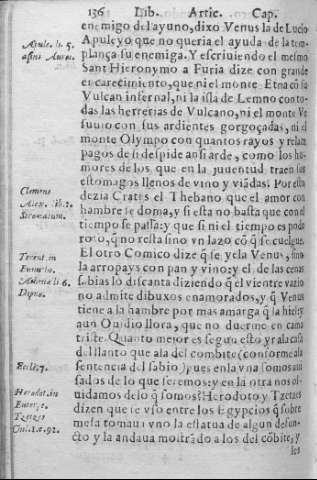 136 Lib. Artic. Cap.
enemigo del ayuno, dixo Venus la de Lucio
Apuleyo que no queria el ayuda de la tem-
plança su enemiga. Y escriuiendo el mesmo
Sant Hieronymo a Furia dize con grande
encarecimiento, que ni el monte Etna cõ su
Vulcan infernal, ni la isla de Lemno con to-
das las herrerias de Vulcano, ni el monte Ve
suuio con sus ardientes gorgoçadas, ni el
monte Olympo con quantos rayos y relam
pagos de si despide ansi arde, como los hu-
mores de los que en la juuentud traen sus
estomagos llenos de vino y viãdas. Por esto
dezia Crates el Thebano que el amor con
hambre se doma, y si esta no basta que con el
tiempo se passa: y que si ni el tiempo es pode
roto, q̃ no resta sino vn lazo cõ q̃ se cuelgue.
El otro Comico dize q̃ se yela Venus, sino
la arropays con pan y vino: y el de las cenas
sabias lo discanta diziendo q̃ el vientre vazio
no admite dibuxos enamorados, y q̃ Venus
tiene a la hambre por mas amarga q̃ la hiel: y
aun Ouidio llora, que no duerme en cama
triste. Quanto mejor es segun esto yr a la casa
del llanto que ala del combite (conforme a la
sentencia del sabio) pues en la vna somos aui
sados de lo que seremos: y en la otra nos ol-
uidamos de lo q̃ somos? Herodoto y Tzetzes
dizen que se vso entre los Egypcios q̃ sobre
mesa tomaua vno la estatua de algun defun-
cto y la andaua mostrãdo a los del cõbite, y
les
Apule. li. 5.
asini Aurei.
Clemens
Alex. lib. 2.
Stromatum.
Terent. in
Eunucho.
Athenæ li 6.
Dipno.
Eccle. 7.
Herodot. in
Euterpe.
Tzetzes